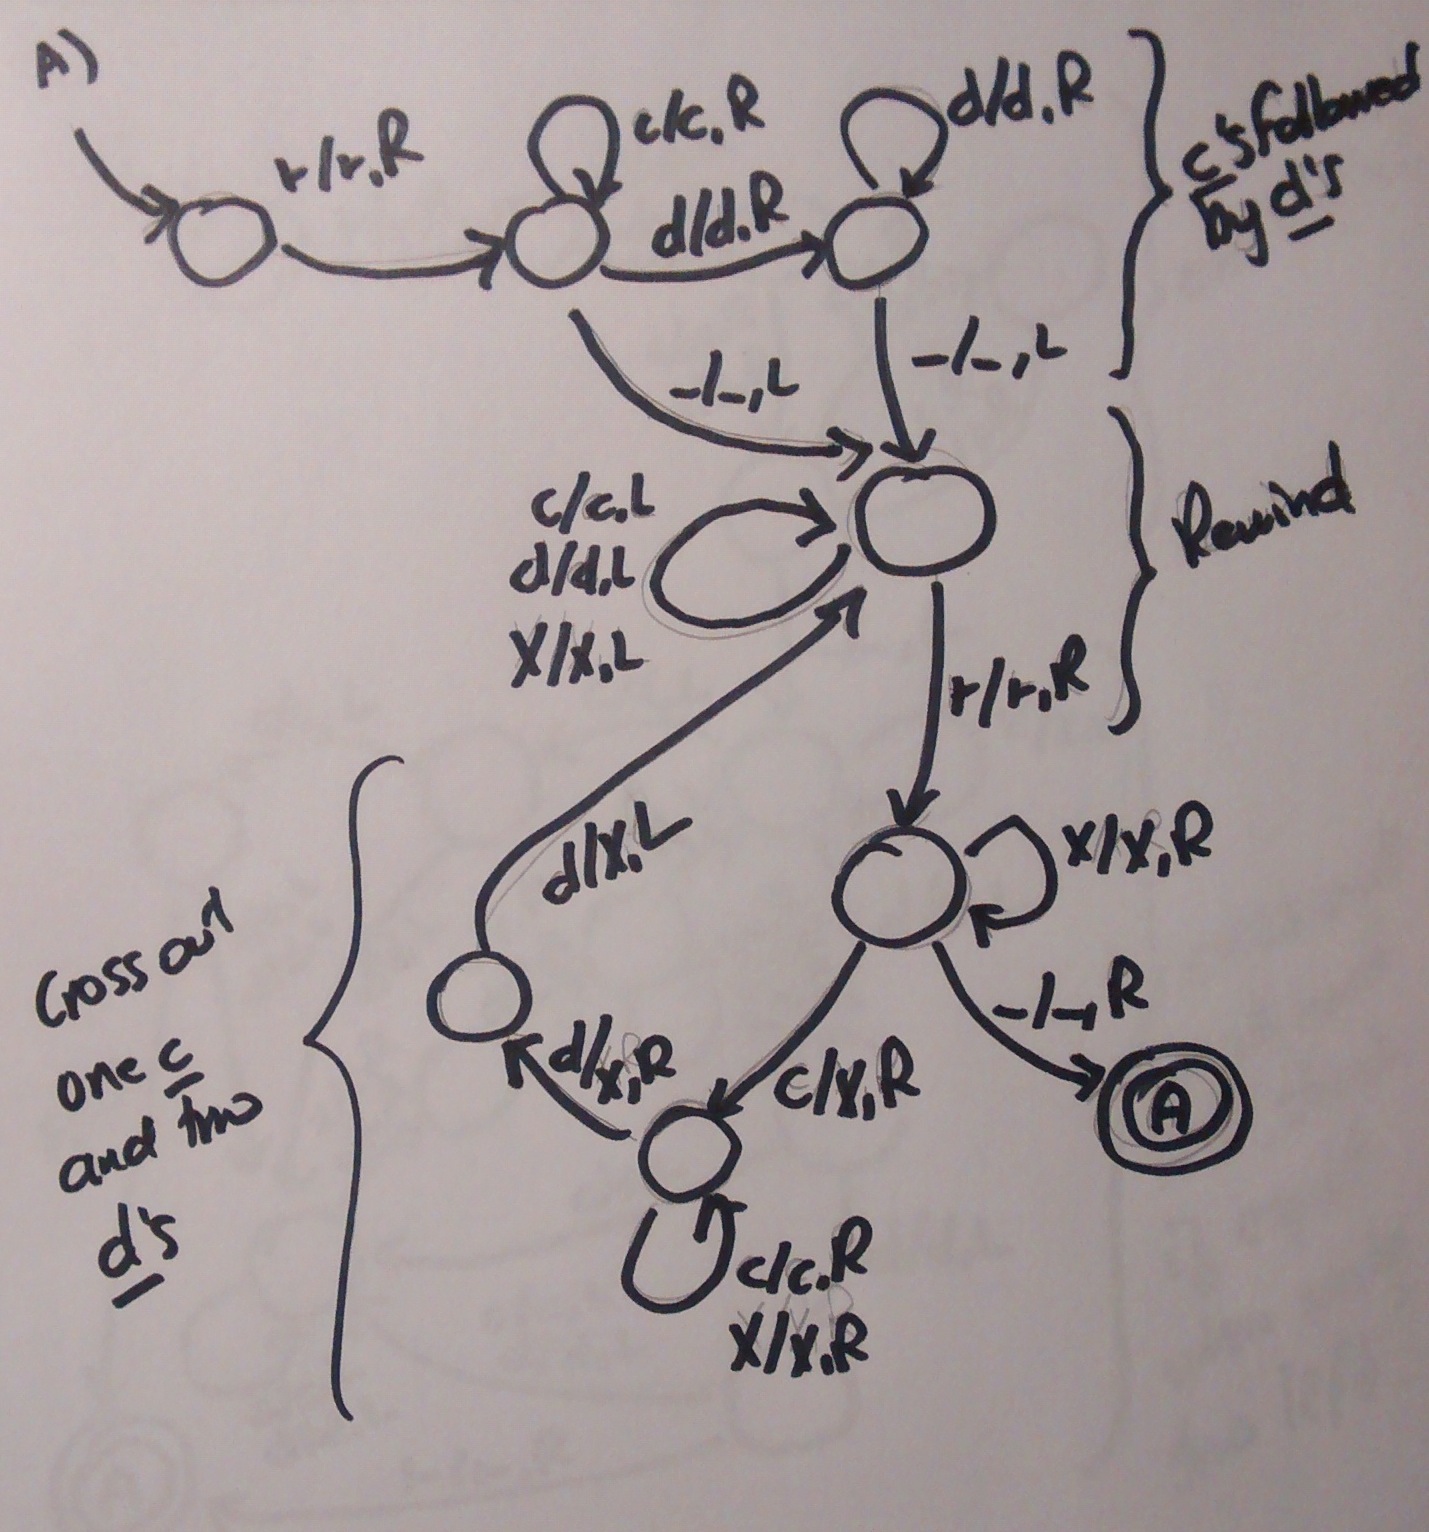 A)
r/r,R
c/c,R
d/d,R
d/d,R
c's followed
by d's
-/-,L
-/-,L
c/c,L
d/d,L
X/X,L
Rewind
r/r,R
X/X,R
d/X,L
-/-,R
c/X,R
d/X,R
A
Cross out
one c
and two
d's
c/c,R
X/X,R